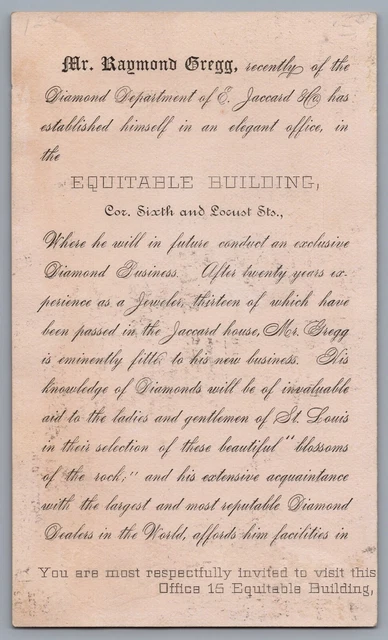 Mr. Raymond Gregg, recently of the
Diamond Department of E. Jaccard & Co has
established himself in an elegant office, in
the
EQUITABLE BUILDING,
Cor. Sixth and Locust Sts.,
Where he will in future conduct an exclusive
Diamond Business. After twenty years ex-
perience as a Jeweler, thirteen of which have
been passed in the Jaccard house, Mr. Gregg
is eminently fitted to his new business. His
knowledge of Diamonds will be of invaluable
aid to the ladies and gentlemen of St. Louis
in their selection of these beautiful "blossoms
of the rock;" and his extensive acquaintance
with the largest and most reputable Diamond
Dealers in the World, affords him facilities in
You are most respectfully invited to visit this
Office 15 Equitable Building,